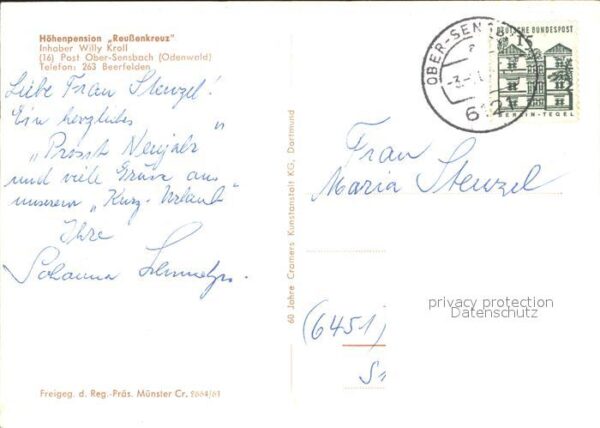 Höhenpension „Reußenkreuz"
Inhaber Willy Kroll
(16) Post Ober-Sensbach (Odenwald)
Telefon: 263 Beerfelden
Liebe Frau Stenzel!
Ein herzliches
„Prosst Neujahr"
und viele Grüße aus
unserem „Kurz-Urlaub"
Ihre
Johanna
Freigeg. d. Reg.-Präs. Münster Cr. 2664/61
60 Jahre Cramers Kunstanstalt KG, Dortmund
OBER-SENS
6121
15
DEUTSCHE BUNDESPOST
BERLIN-TEGEL
Frau
Maria Stenzel
privacy protection
Datenschutz
(6451)